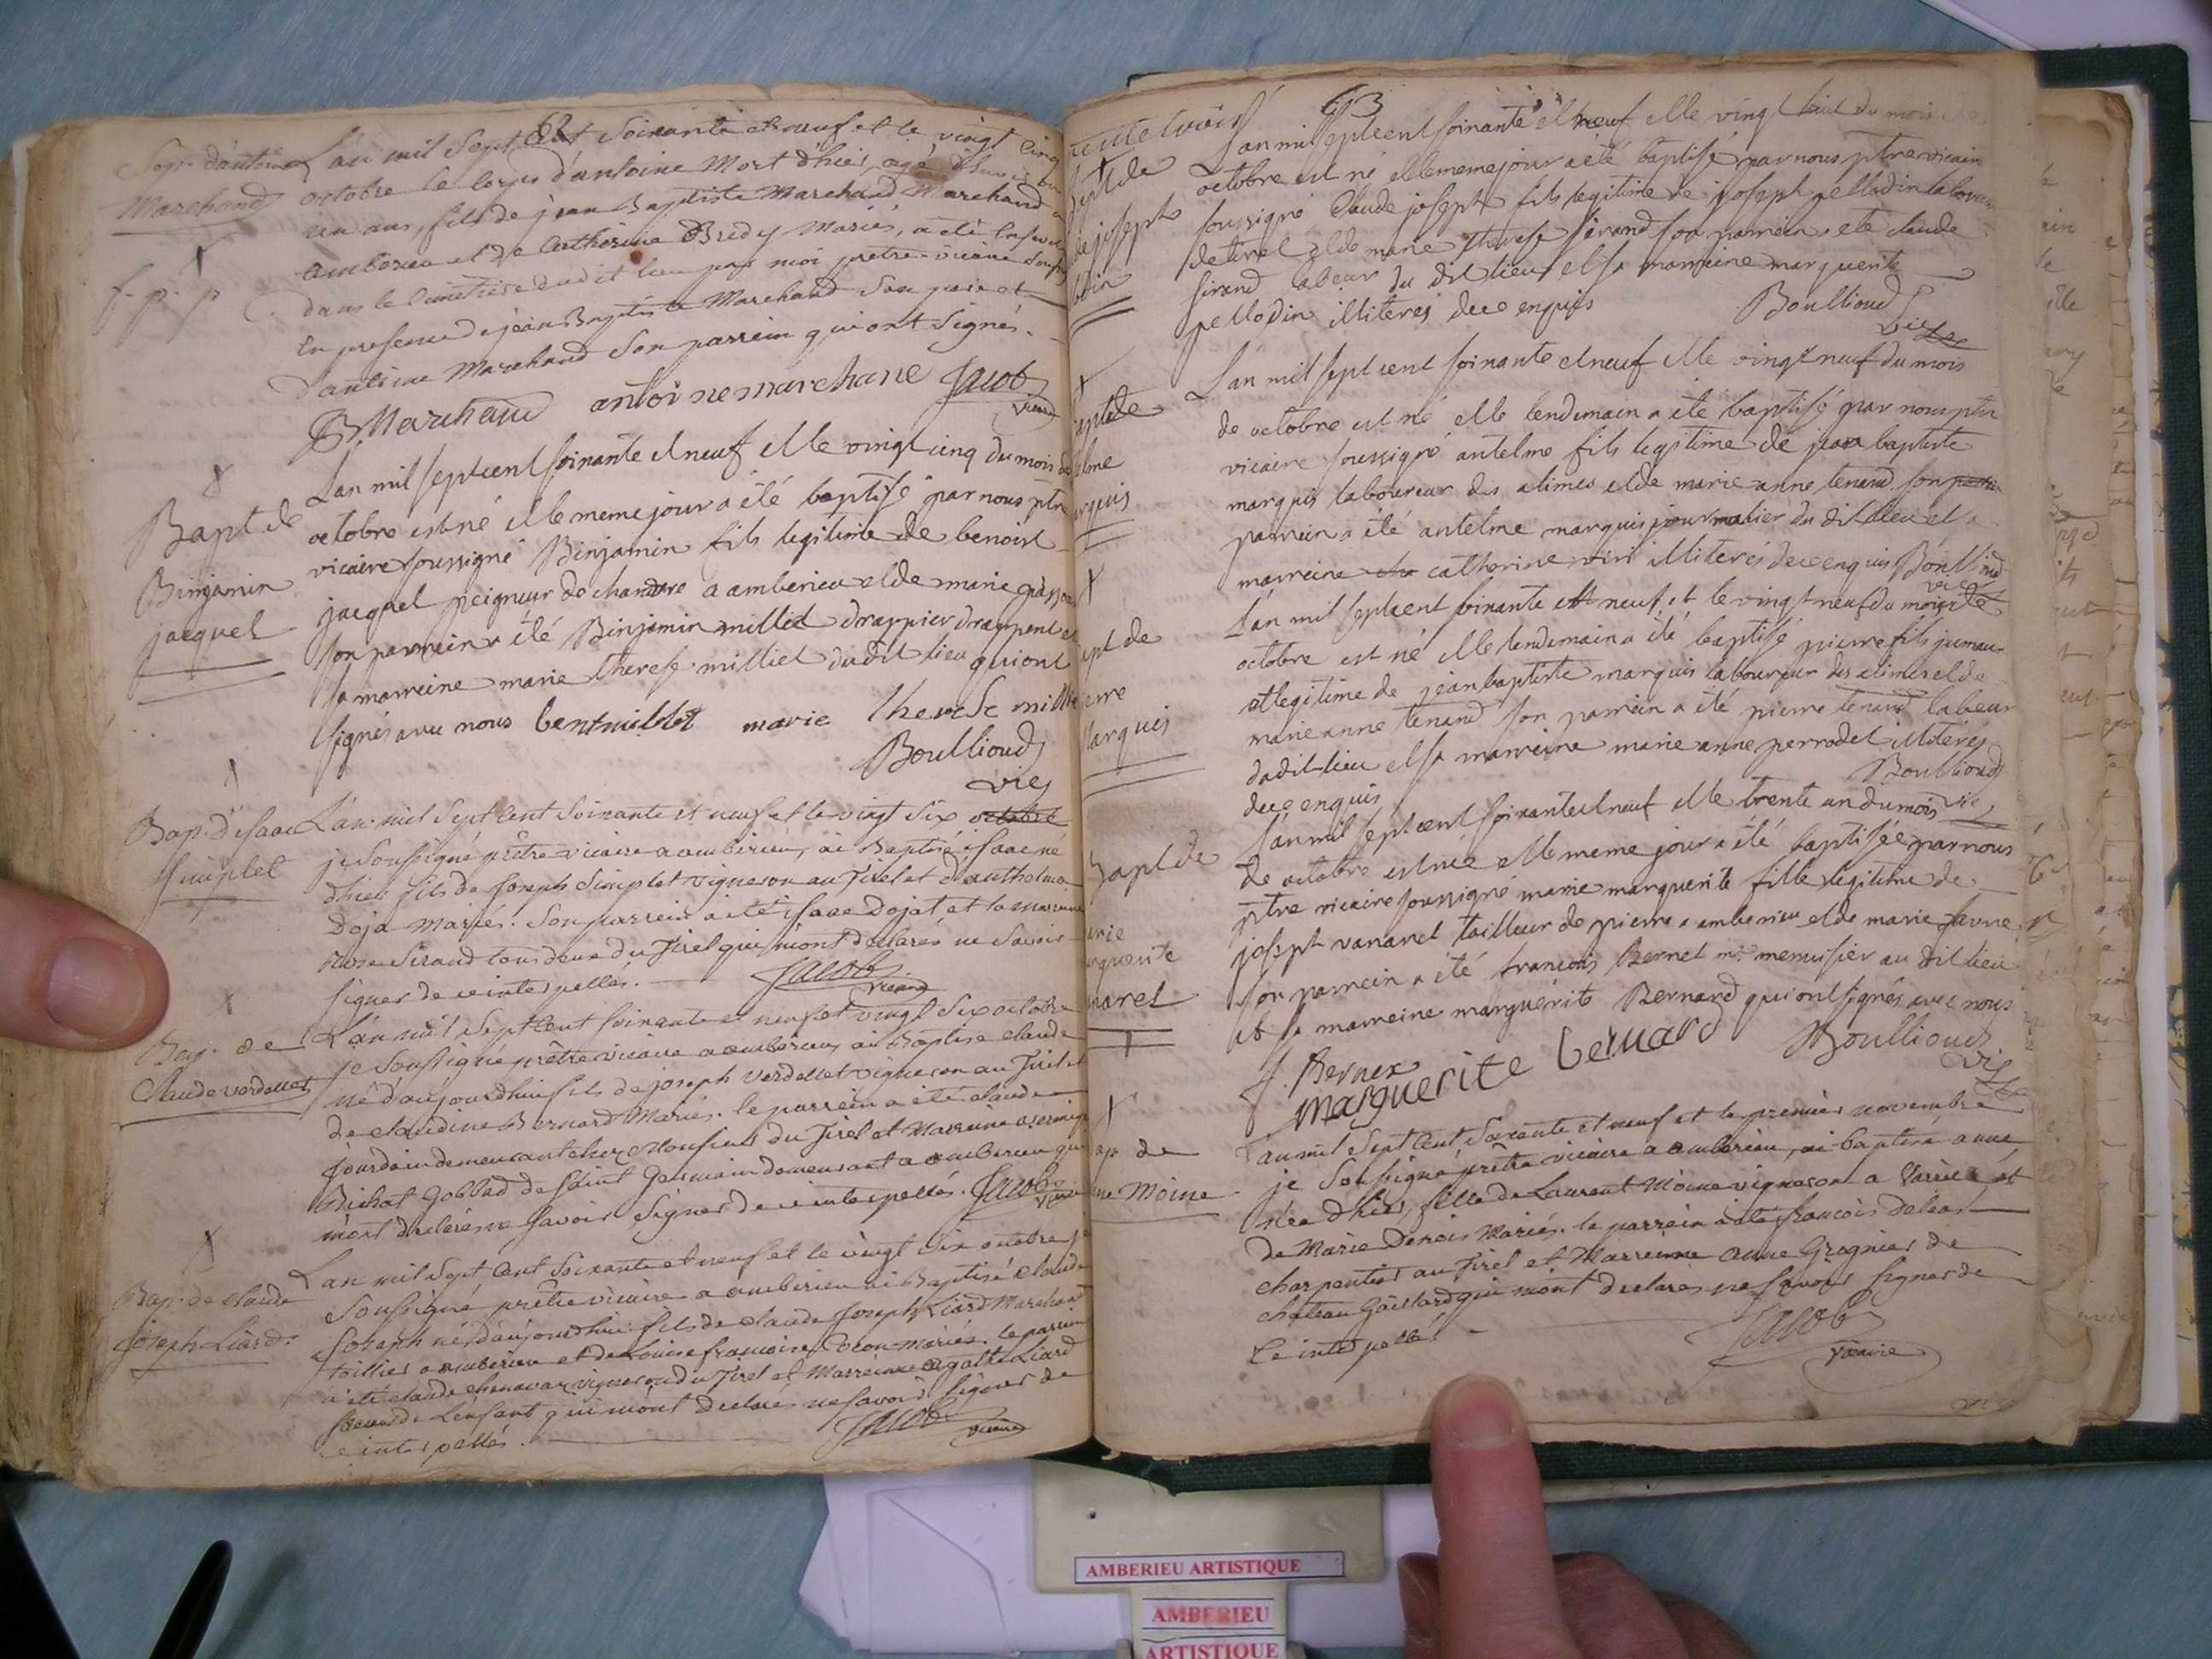 62
Sep. d'antoine
Marchand
f. p. p
L'an mil Sept Cent Soixante et neuf et le vingt Cinq
octobre le corps d'antoine Mort d'hier, agé
un ans, fils de jean Baptiste Marchand Marchand a
amberieu et de Catherine Bredy Mariés, a été
dans le Cimetiere dudit lieu par moi pretre vicaire
En presence de jean Baptiste Marchand Son pere et
d'antoine Marchand Son parrein qui ont Signés.
BMarchand antoine marchane Jacob
vicaire
Bapt de
Binjamin
jacquet
L'an mil sept cent soixante et neuf et le vingt cinq du mois de
octobre est né et le meme jour a été baptisé par nous ptre
vicaire soussigné Binjamin fils legitime de benoist
jacquet peigneur de chanvre a amberieu et de marie
son parrein a été Binjamin milliet drappier drappent et
sa marreine marie therese milliet dudit lieu qui ont
signés avec nous marie therese
Boullioud
vic
Bap. d'isaac
Simplet
L'an mil Sept Cent Soixante et neuf et le vingt Six octobre
je Soussigné prêtre vicaire a amberieu, ai Baptisé isaac né
d'hier fils de Joseph Simplet vigneron au Tiret et d'anthelma
Doja Mariés. Son parrein a été isaac Dojat et la marreine
Rose Sirand tous deux du Tiret qui m'ont declarés ne Savoir
signer de ce interpellés.
Jacob
vicaire
Bap. de
Claude verdellet
L'an mil Sept Cent Soixante et neuf et vingt Six octobre
je Soussigné prêtre vicaire a amberieu ai Baptisé claude
né d'aujourdhui fils de joseph verdellet vigneron au Tiret et
de claudine Bernard Mariés. le parrein a été claude
Jourdain demeurant chez Monsieur du Tiret et Marreine
Bichat Gobbad de Saint Germain demeurant a amberieu qui
m'ont declarés ne Savoir Signer de ce interpellés. Jacob
vicaire
Bap. de claude
Joseph Liard.
L'an mil Sept Cent Soixante et neuf et le vingt Six octobre je
Soussigné prêtre vicaire a amberieu ai Baptisé claude
Joseph né d'aujourdhui fils de claude Joseph Liard Marchand
taillier a amberieu et de Louise francoise Mariés. le parrein
a été claude chenavar vigneron du Tiret et Marreine agathe Liard
Soeur de L'enfant qui m'ont declarés ne Savoir Signer de
ce interpellés.
Jacob
vicaire
63
L'an mil sept cent soixante et neuf et le vingt huit du mois
octobre est né et le meme jour a été baptisé par nous ptre vicaire
soussigné Claude joseph fils legitime de joseph pellodin
de tiret et de marie therese sirand son parrein a été claude
sirand labeur du dit lieu et sa marreine marguerite
pellodin illiterés de ce enquis
Boullioud
vic
L'an mil sept cent soixante et neuf et le vingt neuf du mois
de octobre est né et le lendemain a été baptisé par nous ptre
vicaire soussigné antelme fils legitime de jean baptiste
marquis laboureur des alimes et de marie anne tenand son
parrein a été antelme marquis journalier du dit lieu et sa
marreine catherine illiterés de ce enquis Boullioud
vic
L'an mil sept cent soixante et neuf et le vingt neuf du mois de
octobre est né et le lendemain a été baptisé pierre fils jumeau
et legitime de jean baptiste marquis laboureur des alimes et de
marie anne tenand son parrein a été pierre tenand labeur
du dit lieu et sa marreine marie anne perrodet illiterés
de ce enquis
Boullioud
vic
Bapt de
L'an mil sept cent soixante et neuf et le trente un du mois
de octobre est née et le meme jour a été baptisée par nous
ptre vicaire soussigné marie marguerite fille legitime de
joseph vanaret tailleur de pierre a amberieu et de marie
son parrein a été francois Bernet me menuisier au dit lieu
et sa marreine marguerite Bernard qui ont signés avec nous
marguerite bernard Boullioud
vic
Moine
L'an mil Sept Cent Soixante et neuf et le premier novembre
je Soussigné prêtre vicaire a amberieu, ai baptisé anne
née d'hier, fille de Laurent Moine vigneron a Vareille et
de Marie Denois Mariés. le parrein a été francois
charpentier au Tiret et Marreinne anne Grognier de
chateau Gaillard qui m'ont declarés ne Savoir Signer de
Ce interpellé.
Jacob
vicaire
AMBERIEU ARTISTIQUE
AMBERIEU
ARTISTIQUE